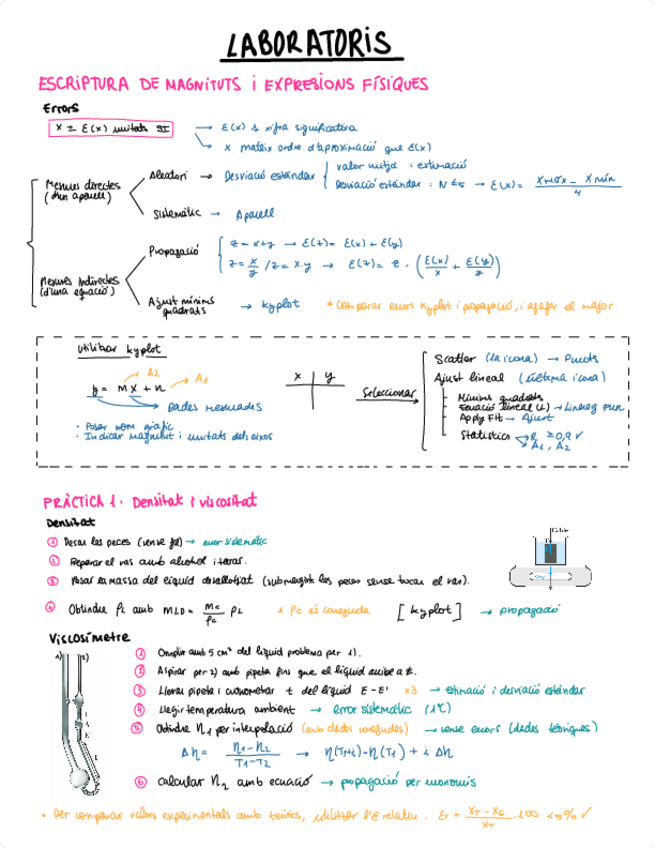 LABORATORIS
ESCRIPTURA DE MAGNITUTS i EXPRESIONS FÍSIQUES
Errors
x ± ε(x) unitats SI → ε(x) 1 xifra significativa
↳ x mateix ordre d'aproximació que ε(x)
Mesures directes (d'un aparell)
Aleatori → Desviació estándar
valor mitjà : estimació
Desviació estándar : N ≤ 5 → ε(x) = (xmàx - xmín) / 4
Sistemàtic → Aparell
Mesures Indirectes (d'una equació)
Propagació
z = x+y → ε(z) = ε(x) + ε(y)
z = x/y / z = x·y → ε(z) = z · (ε(x)/x + ε(y)/y)
Ajust mínims quadrats → kyplot * Comparar errors kyplot i propagació, i agafar el major
Utilitzar kyplot
y = mx + n
A2
A1
Dades mesurades
• Posar nom gràfic
• Indicar magnitut i unitats dels eixos
x y
Seleccionar
Scatter (1a icona) → Punts
Ajust lineal (última icona)
Mínims quadrats
Equació lineal (1) → Linreg Fun
Apply Fit → Ajust
Statistics
R ≥ 0,9 ✓
A1, A2
PRÀCTICA 1: Densitat i viscositat
Densitat
① Pesar les peces → error sistemàtic
② Preparar el vas amb alcohol i tarar.
③ Posar la massa del líquid desallotjat (submergint les peces sense tocar el vas).
④ Obtindre ρL amb MLD = mc/ρc ρL * ρc és coneguda [kyplot] → propagació
Viscosímetre
1) 2)
① Omplir amb 5 cm³ del líquid problema per 1).
② Aspirar per 2) amb pipeta fins que el líquid arribe a E.
③ Llevar pipeta i cronometrar t del líquid E - E' x3 → Estimació i desviació estándar
④ Llegir temperatura ambient → error sistemàtic (1ºC)
⑤ Obtindre η1 per interpolació (amb dades conegudes) → sense errors (dades teòriques)
Δη = (η1 - η2) / (T1 - T2) → η(T1+i) = η(T1) + i Δη
⑥ calcular η2 amb ecuació → propagació per monomis
* Per comparar valors experimentals amb teòrics, utilitzar l'ε relatiu. Er = (XT - XE) / XT · 100 <5% ✓